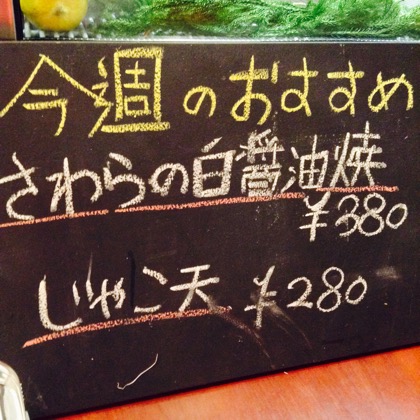 今週のおすすめ
さわらの白醤油焼
¥380
じゃこ天 ¥280